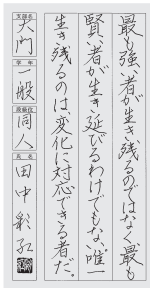 最も強い者が生き残るのではなく最も
賢い者が生き延びるわけでもない唯一
生き残るのは変化に対応できる者だ。
支部名
大門
学年
一般
段級位
同人
氏名
田中彩